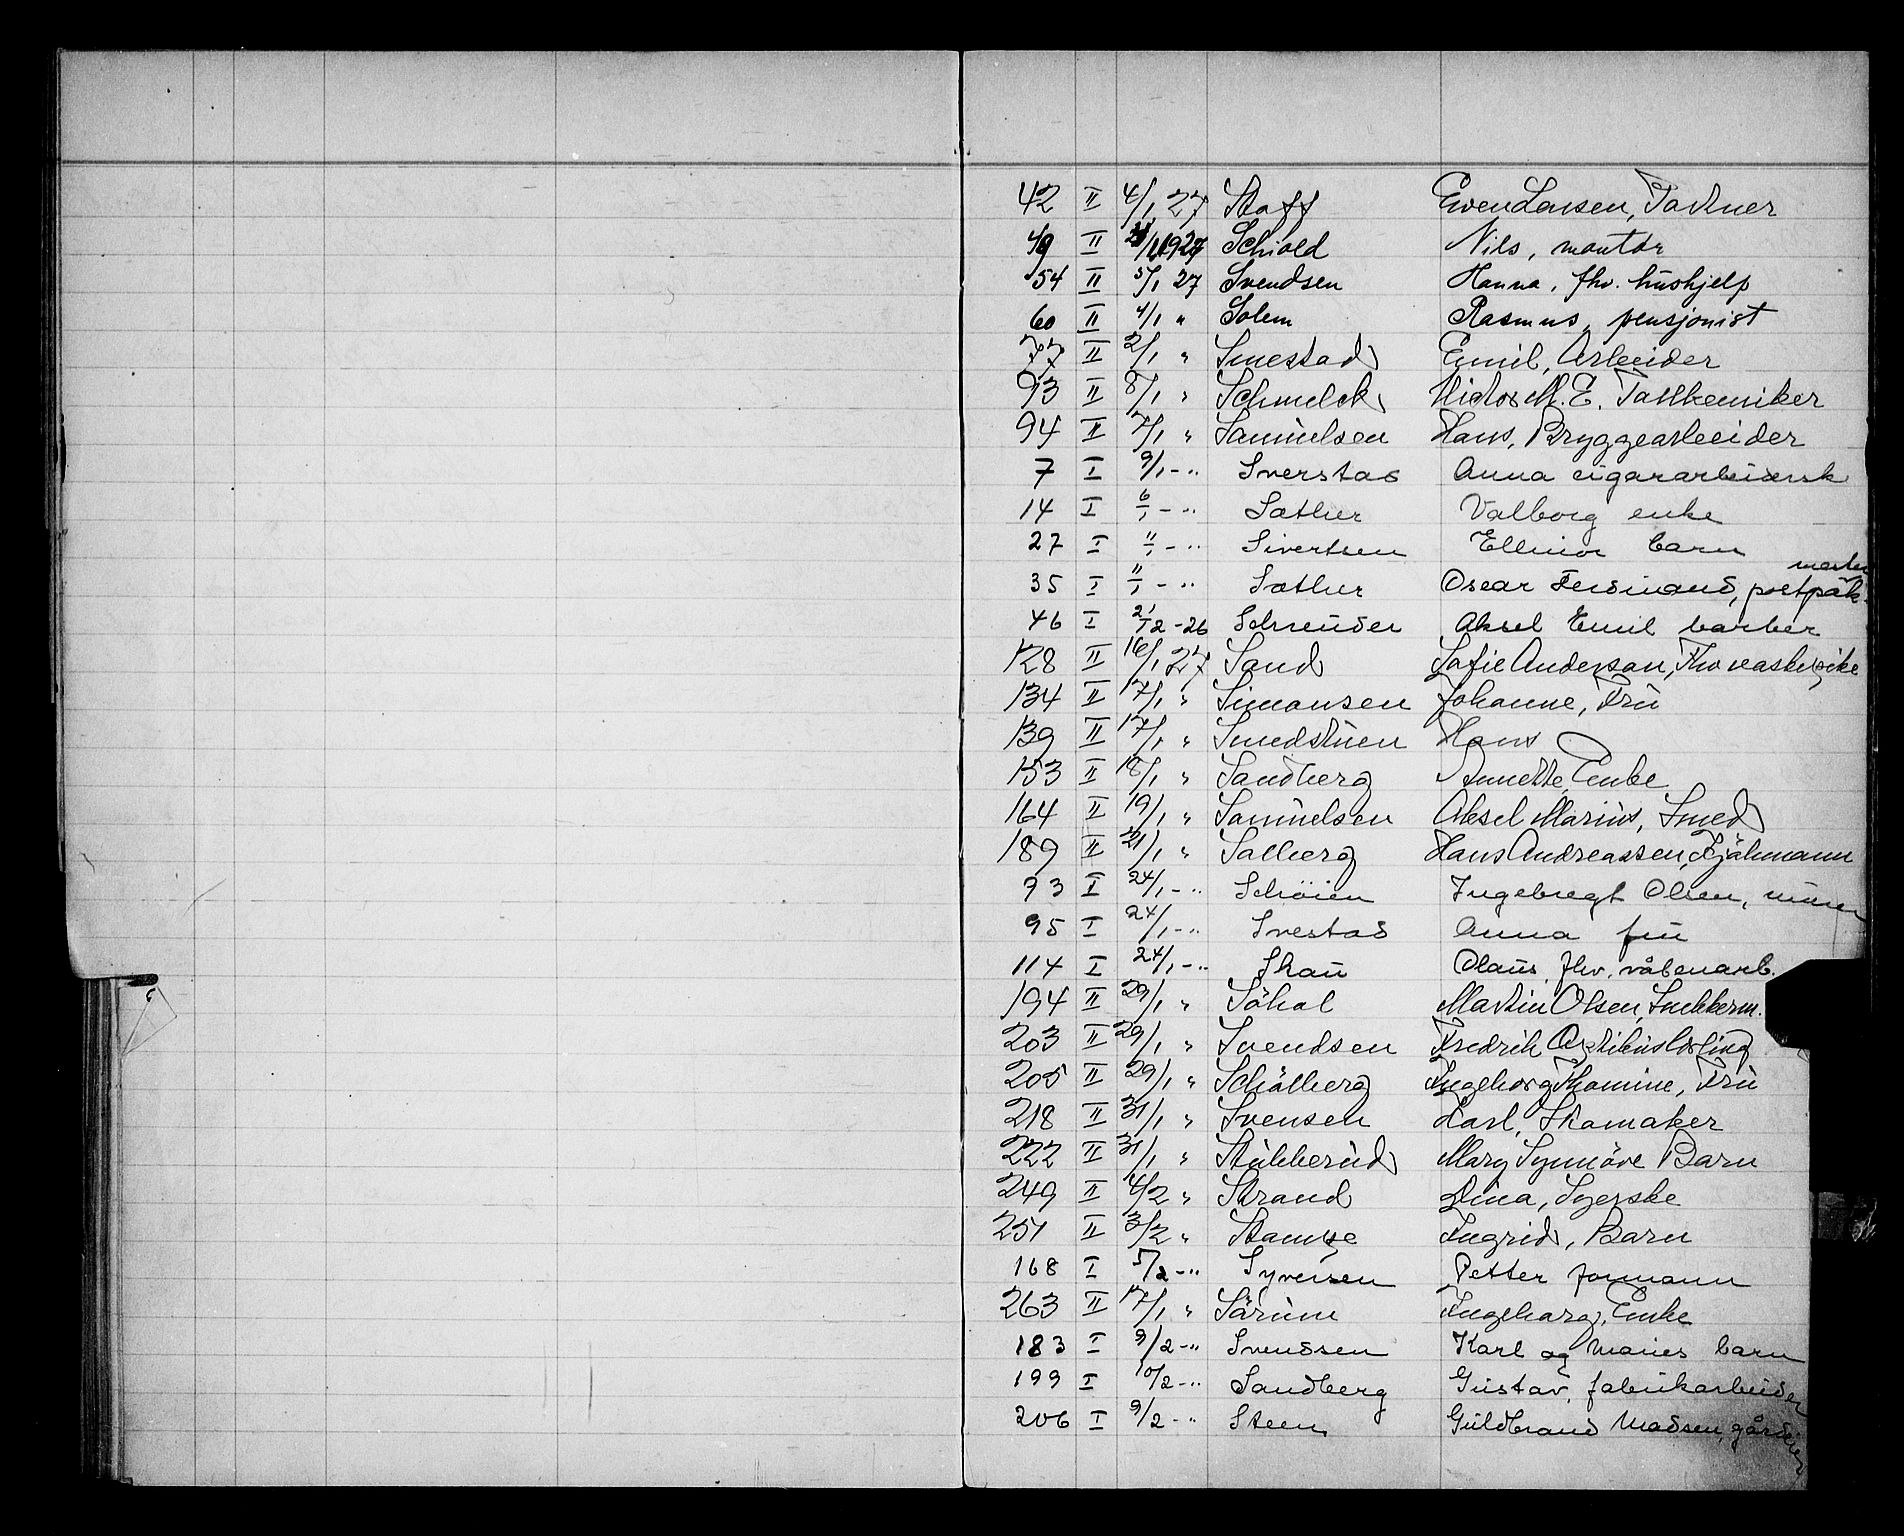 42 II 4/1 27 Staff Even Larsen, Partner
49 II 1/1 1927 Schiold Nils, montør
54 II 5/1 27 Svendsen Hanna, fhv. hushjelp
60 II 4/1 " Solem Rasmus, pensjonist
77 II 2/1 " Smestad Emil, Arbeider
93 II 8/1 " Schmelck M. E.
94 II 7/1 " Samuelsen Hans, Bryggearbeider
7 I 9/1 - " Sverstad Anna cigararbeidersk
14 I 6/1 - " Sæther Valborg enke
27 I 11/1 - " Sivertsen Ellinor barn
35 I 11/1 - " Sæther Oscar Ferdinand, postpak. mester
46 I 21/12 - 26 Schrøuder Aksel Emil barber
128 II 16/1 27 Sand Sofie Anderson, Fhv vaskepike
134 II 17/1 " Simonsen Johanne, Fru
139 II 17/1 " Smedstuen Hans
153 II 18/1 " Sandberg Annette, Enke
164 II 19/1 " Samuelsen Aksel Marius, Smed
189 II 21/1 " Solberg Hans Andreassen, Sjømann
93 I 24/1 - " Schöien Ingebregt Olsen, murer
95 I 24/1 - " Svestad Anna fru
114 I 24/1 - " Skau Olaus, fhv. våbenarb.
194 II 29/1 " Söhol Martin Olsen, Snekkerm.
203 II 29/1 " Svendsen Fredrik
205 II 29/1 " Schölberg Ingeborg Thomine, Fru
218 II 31/1 " Svensen Karl, Skomaker
222 II 31/1 " Stubberud Mary Synnöve Barn
249 II 4/2 " Strand Lina, Syerske
251 II 3/2 " Stampe Ingrid, Barn
168 I 5/2 - " Syversen Petter formann
263 II 17/1 " Sörum Ingeborg, Enke
183 I 9/2 - " Svendsen Karl og Maries barn
199 I 10/2 - " Sandberg Gustav, fabrikarbeider
206 I 9/2 - " Steen Guldbrand Madsen,